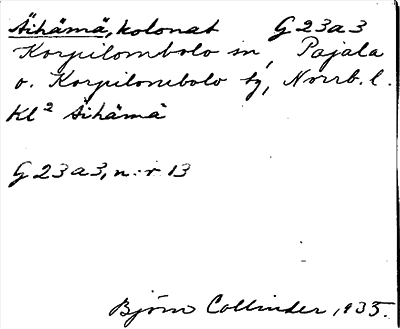 Äihämä, kolonat G 23 a 3
Korpilombolo sn, Pajala
o. Korpilombolo tg, Norrb. l.
Kl² Äihämä
G 23 a 3, n:r 13
Björn Collinder, 1935.